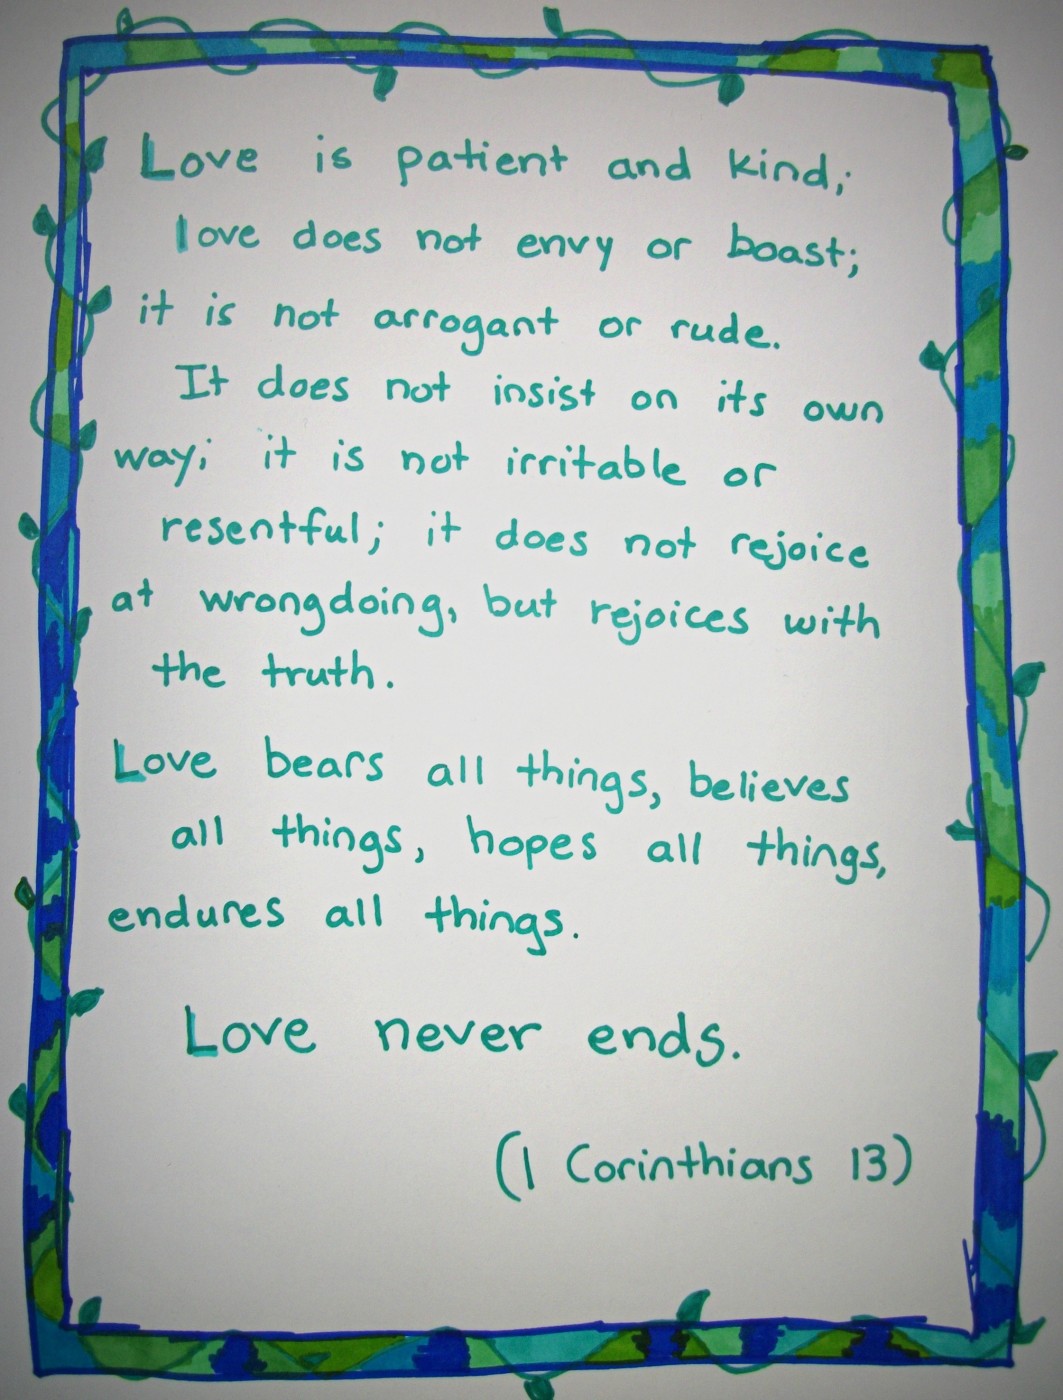 Love is patient and kind;
love does not envy or boast;
it is not arrogant or rude.
It does not insist on its own
way; it is not irritable or
resentful; it does not rejoice
at wrongdoing, but rejoices with
the truth.
Love bears all things, believes
all things, hopes all things,
endures all things.
Love never ends.
(1 Corinthians 13)